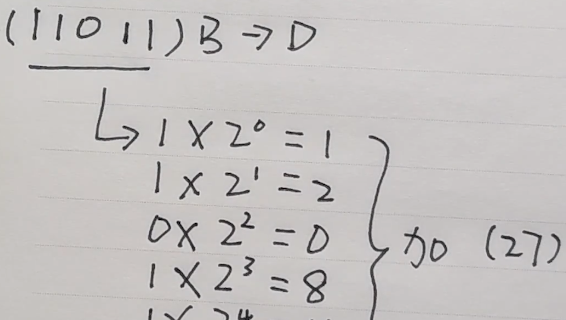 (11011)B→D
1×2⁰=1
1×2¹=2
0×2²=0
1×2³=8
加 (27)